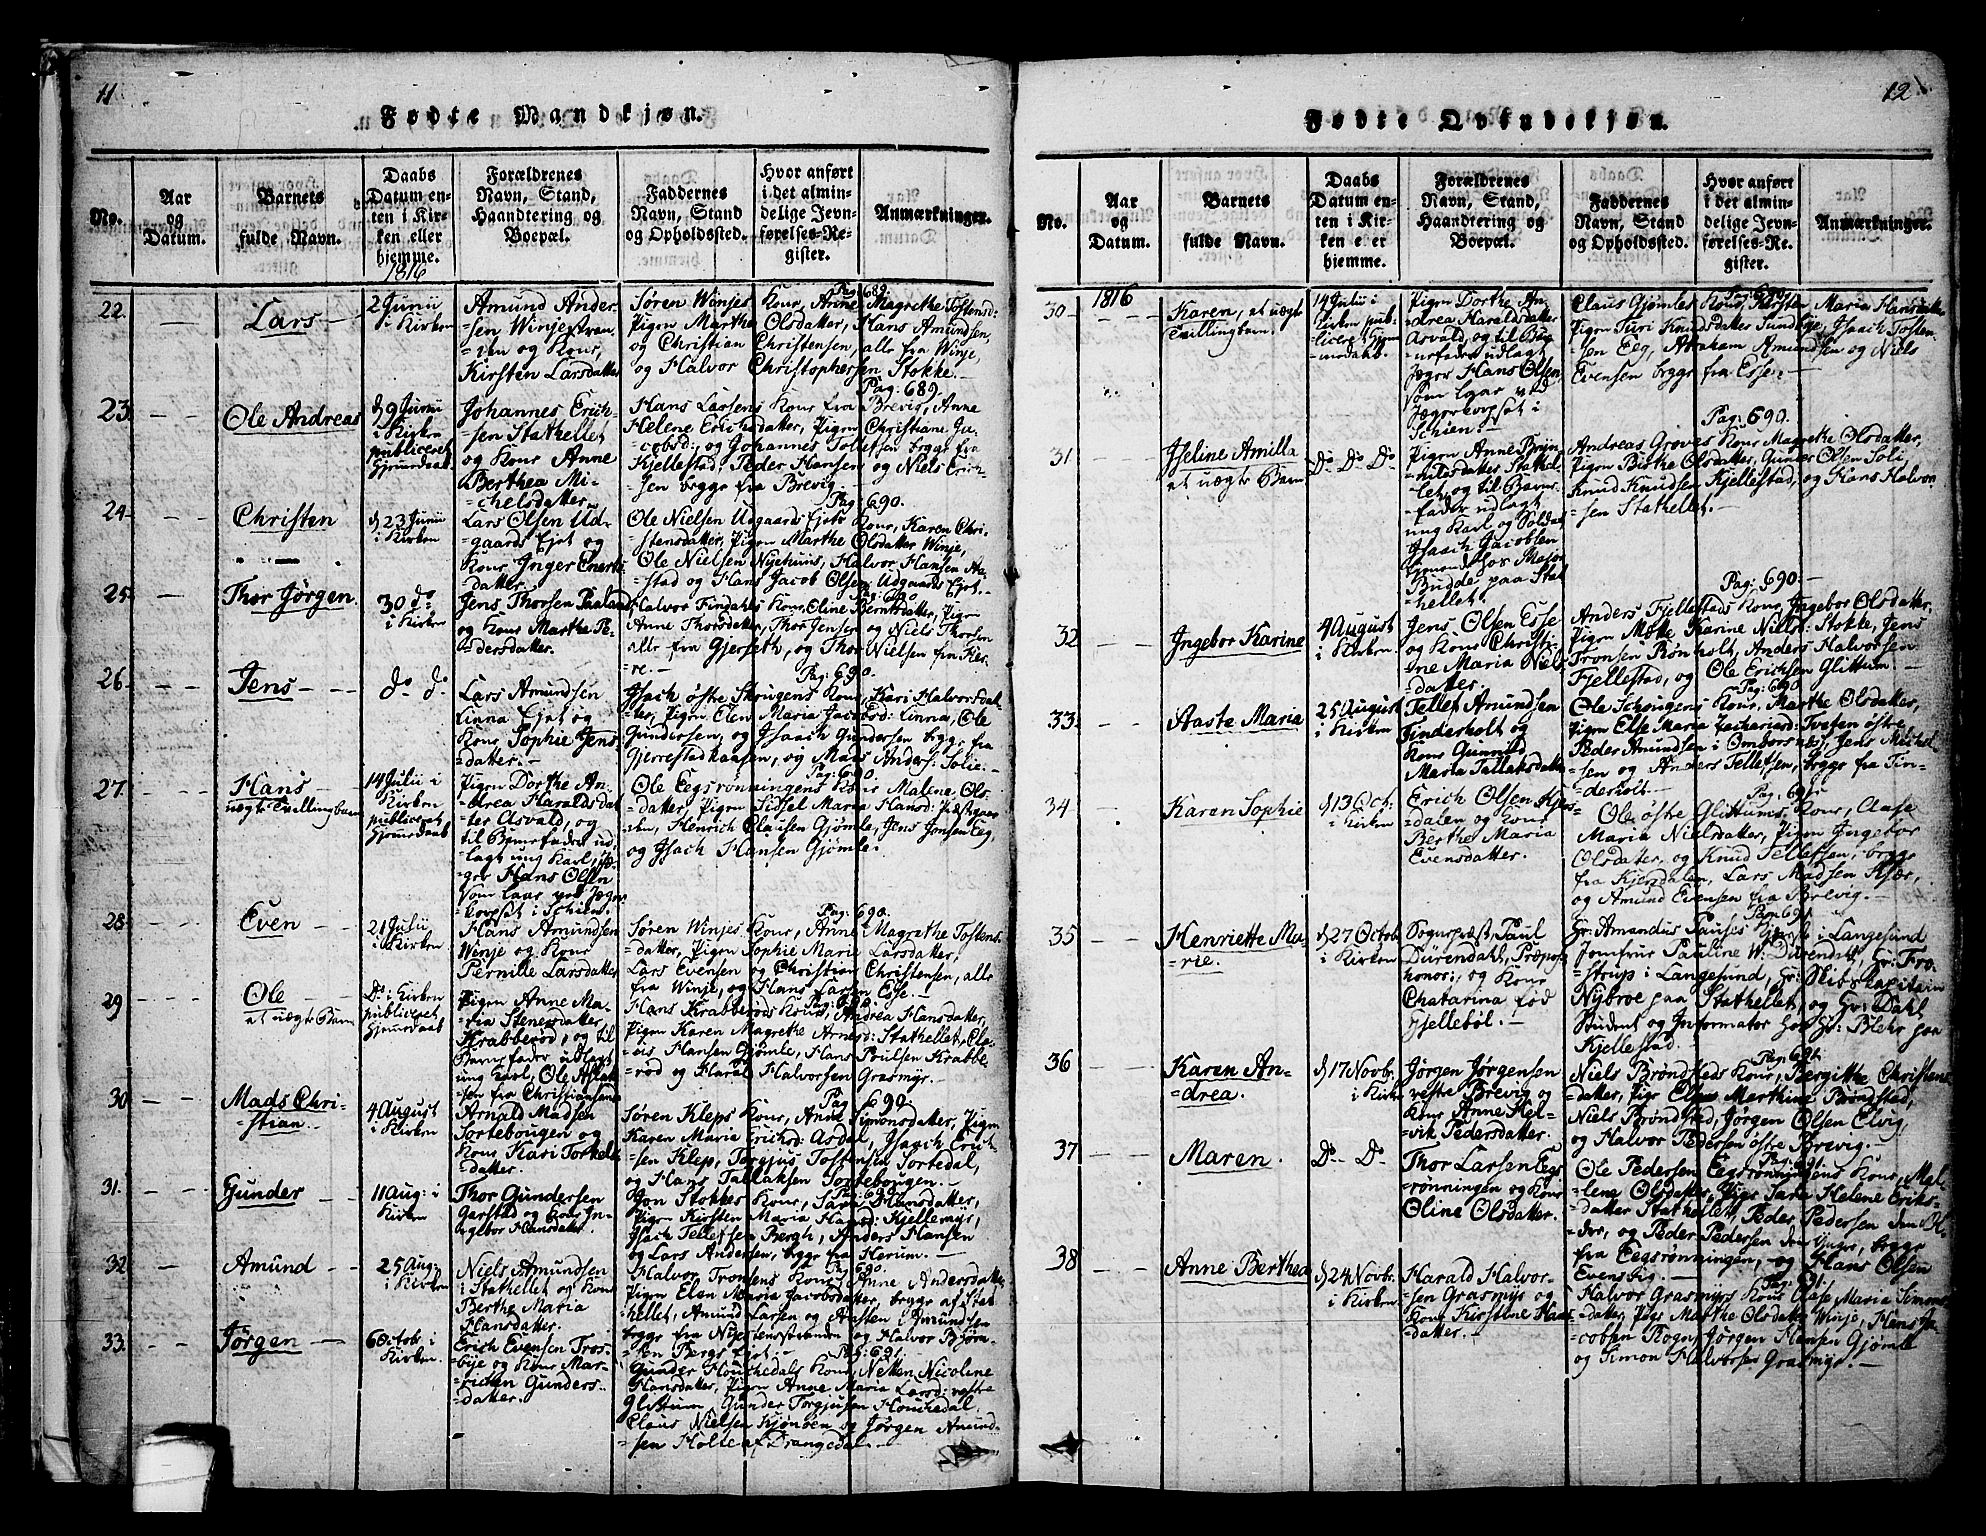 11
Fødte Mandkjøn.
No.
Aar
og
Datum.
Barnets
fulde Navn.
Daabs
Datum en-
ten i Kir-
ken eller
hjemme.
Forældrenes
Navn, Stand,
Haandtering og
Boepæl.
Faddernes
Navn, Stand
og Opholdssted.
Hvor anført
i det almin-
delige Jevn-
førelses-Re-
gister.
Anmærkninger.
1816
22.
Lars
2 Junii
i Kirken
Amund Ander-
sen Winjestran-
=den og Konr,
Kirsten Larsdatter
Pag: 689.
Søren Winjes Konr, Anne Magrethe Tostensd:
Pigen Marthe Olsdatter, Hans Amundsen,
og Christian Christensen, alle fra Winje,
og Halvor Christophersen Stokke.
23.
Ole Andreas
9 Junii
i Kirken
publiceret
Johannes Erich-
sen Stathellet
og Konr Anne
Berthea Mi-
chelsdatter
Pag: 689.
Hans Larsens Konr fra Brevig, Anne
Helene Erichsdatter, Pigen Christiane Ja-
cobsd: og Johannes Tollefsen begge fra
Kjellestad, Peder Hansen og Niels Erich-
sen begge fra Brevig.
24.
Christen
23 Junii
i Kirken
Lars Olsen Ud-
=gaards Ejet og
Konr Inger Enerts
datter.
Pag: 690.
Ole Nielsen Udgaards Ejets Konr, Karen Chri-
stensdatter, Pigen Marthe Olsdatter Winje,
Ole Nielsen Nyehuus, Halvor Hansen Aa-
stad og Hans Jacob Olsen Udgaards Ejet.
25.
Thor Jørgen.
30 do
i Kirken
Jens Thorsen
og Konr Marthe Pe-
dersdatter.
Pag: 690
Halvor Findahls Konr, Oline Berntsdatter, Pigen
Anne Thorsdatter, Thor Jensen og Niels Thorsen
alle fra Gjerseth, og Thor Nielsen fra Her-
=re.
26.
Jens
do do
Lars Amundsen
Linna Ejet og
Konr Sophie Jens
datter.
Pag: 690.
Isach østre Skougens Konr, Kari Halvorsdat-
ter, Pigen Elen Maria Jacobsd: Linna, Ole
Gundersen, og Isaach Gundersen begge fra
Gjerrestadkaasen, og Mads Anders: Solie.
27.
Hans
uægte Tvillingbarn
14 Julii i
Kirken
publiceret
Pigen Dorthe An-
drea Haraldsdat
ter Asvald, og
til Barnefader ud-
lagt ung Karl, Jæ-
ger Hans Olsen
som laae ved Jæger
korpset i Schien.
Pag: 690.
Ole Eegsrønningens Konr Malene Ols-
datter, Pigen Sidsel Maria Hansd: Præstgaar
den, Henrich Clausen Gjømle, Jens Jensen Eeg,
og Isach Hansen Gjømle.
28.
Even
21 Julii
i Kirken
Hans Amundsen
Winje og Konr
Pernille Larsdatter
Pag: 690.
Søren Winjes Konr, Anne Magrethe Tostens-
datter, Pigen Sophie Marie Larsdatter,
Lars Evensen og Christian Christensen, alle
fra Winje, og Hans Larsen Esse.
29
Ole
et uægte Barn
Do i Kirken
publiceret
Pigen Anne Ma-
ria Stenersdatter
Krabberød, og til
Barnefader udlagt
ung Karl, Ole Aslak
sen fra Christiansand
Pag: 690.
Hans Krabberøds Konr, Andrea Hansdatter,
Pigen Karen Magrethe Arnesd: Stathellet, Cla-
Hansen Gjømle, Hans Poulsen Krabbe
rød og Harald Halvorsen Grasmyr.
30
Mads Chri-
stian.
4 August
i Kirken
Arnald Madsen
Sortebougen og
Konr Kari Torkels
datter.
Pag 690.
Søren Kleps Konr, Anne Simonsdatter, Pigen
Karen Maria Erichsd: Asdal, Isaach Erich-
sen Klep, Torgjus Tostensen Sortedal,
og Hans Tallaksen Sortebougen.
31.
Gunder
11 Aug: i
Kirken
Thor Gundersen
Garstad og Konr In-
gebor Hansdatter.
Pag: 690.
Jon Stokkes Konr, Sara Hansdatter,
Pigen Kirsten Maria Hansd: Kjellemyr,
Isach Tellefsen Bergh, Anders Hansen
og Lars Andersen, begge fra Herum.
32
Amund
25 Aug:
i Kirken
Niels Amundsen
i Stathellet og Konr
Berthe Maria
Hansdatter.
Pag: 690.
Halvor Tronsens Konr Anne Andersdatter
Pigen Elen Maria Jacobsdatter, begge af Stat
hellet, Amund Larsen og Aasten Amundsen
begge fra Nystensstranden og Halvor Bjørn-
sen Bergs Ejet.
33.
Jørgen
6 Octob: i
Kirken.
Erich Evensen Tros-
bye og Konr Mar-
=rethen Gunders-
datter.
Pag: 691.
Gunder Houchedals Konr, Neken Nicoline
Hansdatter, Pigen Anne Maria Larsd: vestre
Glittum Gunder Torgjusen Houchedal
Claus Nielsen Kjønøen og Jørgen Amund-
=sen Holte af Drangedal.
12
Fødte Qvindekjøn.
No.
Aar
og
Datum.
Barnets
fulde Navn.
Daabs
Datum en-
ten i Kir-
ken eller
hjemme.
Forældrenes
Navn, Stand,
Haandtering og
Boepæl.
Faddernes
Navn, Stand
og Opholdssted.
Hvor anført
i det almin-
delige Jevn-
førelses-Re-
gister.
Anmærkninger.
30
1816
Karen, et uægte
Tvillingbarn.
14 Julii i
Kirken pub-
liceret
Pigen Dorthe An-
drea Haraldsdatter
Asvald, og til Bar-
nefader udlagt
Jæger Hans Olsen
som laae ved
Jægerkorpset i
Schien.
Pag: 690.
Claus Gjømles Konr, Kirsten Maria Hansdatter
Pigen Turi Knudsdatter Sundbye, Isach Tosten-
sen Eeg, Abraham Amundsen og Niels
Evensen begge fra Esse.
31
Iseline Amilla
et uægte Barn
Do Do Do
Pigen Anne
datter Stathel
let, og til Barne-
fader udlagt
ung Karl og Soldat
Isach Jacobsen
hos Major
Budde paa Stat
hellet.
Pag: 690.
Andreas Groves Konr Magrethe Olsdatter,
Pigen Birthe Olsdatter, Gunder Olsen Soli,
Knud Knudsen Kjellestad, og Hans Halvor-
sen Stathellet.
32
Ingebor Karine
4 August
i Kirken
Jens Olsen Esse
og Konr Christi-
ne Maria Niels
datter.
Pag: 690.
Anders Fjellestads Konr, Ingebor Olsdatter
Pigen Mekke Karine Nielsd: Stokke, Jens
Tronsen Rønholt, Anders Halvorsen
Fjellestad, og Ole Erichsen Glittum.
33.
Aaste Maria
25 August
i Kirken
Tellef Amundsen
Tinderholt og
Konr Gunnild
Maria Tallaksdatter
Pag: 690
Ole Schougens Konr, Marthe Olsdatter,
Pigen Else Maria Zachariasd: Tveten østre,
Peder Amundsen i Omborsnes, Jens Michel-
sen og Anders Tellefsen, begge fra Tin-
derholt.
34
Karen Sophie
13 Oct:
i Kirken
Erich Olsen Kjers
dalen og Konr
Berthe Maria
Evensdatter.
Pag: 691
Ole østre Glittums Konr, Aase
Maria Nielsdatter, Pigen Ingebor
Olsdatter, og Knud Tellefsen, begge
fra Kjersdalen, Lars Madsen Kjær,
og Amund Evensen fra Brevig.
35
Henriette Ma-
=rie.
27 Octob:
i Kirken
Sognepræst, Paul
Dürendahl, Præpos:
honor:, og Konr
Chatarina fød
Hjelleböl.
Pag: 691
Hr: Amandus Pauses i Langesund
Jomfrue Pauline W: Dürendahl, Hr: Fro-
strup i Langesund, Hr: Skibskapitain
Nybroe paa Stathellet, og Hr: Dahl
Student og Informator hos Hr: Blehr paa
Kjellestad.
36
Karen An-
=drea.
17 Novb:
i Kirken
Jørgen Jørgensen
vestre Brevig og
Konr Anne Hel-
vik Pedersdatter.
Pag: 691.
Niels Brønsteds Konr, Bergitte Christens
datter, Pige Else Marthine Brønstad,
Niels Brønstad, Jørgen Olsen Elvig,
og Halvor Pedersen østre Brevig.
37
Maren.
Do Do
Thor Larsen Eegs
rønningen og Konr
Oline Olsdatter.
Pag: 691.
Ole Pedersen Eegsrønningens Konr, Mal-
lene Olsdatter, Pige Sara Helene Eriks-
datter Stathellet, Peder Pedersen den Æl-
dre, og Peder Pedersen den Yngre, begge
fra Eegsrønningen, og Hans Olsen
Evensrig.
38
Anne Berthea
24 Novbr:
i Kirken
Harald Halvor-
sen Grasmyr og
Konr Kirstine Hans
datter.
Pag: 691.
Halvor Grasmyrs Konr Aase Maria Simons
datter, Pige Marthe Olsdatter Winje, Hans Ja-
cobsen Rogn, Jørgen Hansen Gjømle
og Simon Halvorsen Grasmyr.